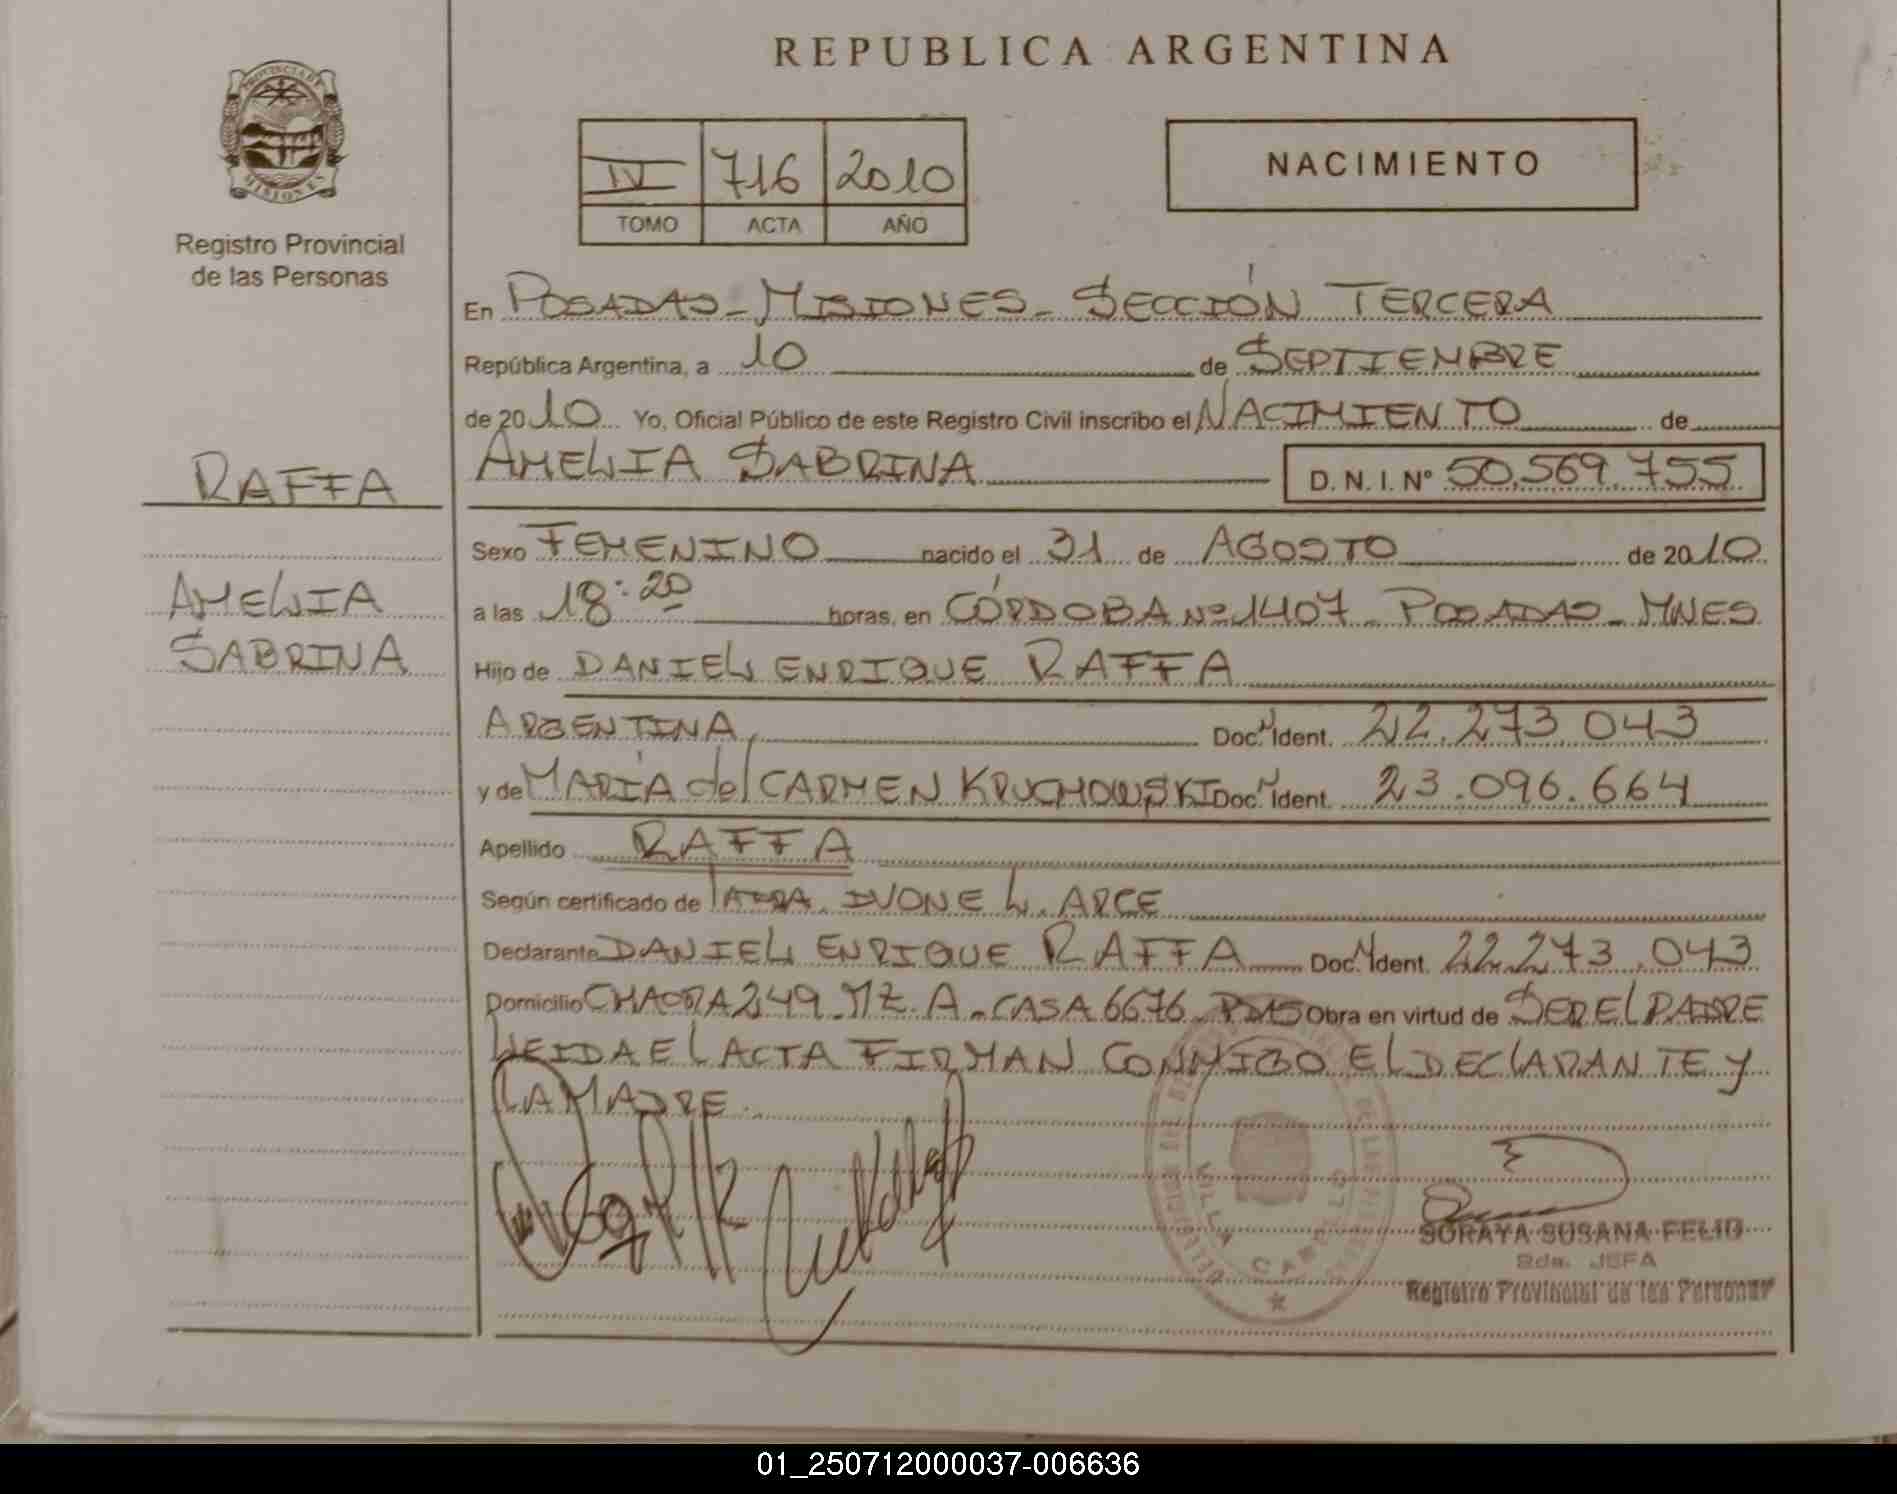 REPUBLICA ARGENTINA
PROVINCIA DE
MISIONES
Registro Provincial
de las Personas
IV 716 2010
TOMO ACTA AÑO
NACIMIENTO
En POSADAS - MISIONES - SECCIÓN TERCERA
República Argentina, a 10 de SEPTIEMBRE
de 2010 Yo, Oficial Público de este Registro Civil inscribo el NACIMIENTO de
AMELIA SABRINA D. N. I. Nº 50.569.755
RAFFA
AMELIA
SABRINA
Sexo FEMENINO nacido el 31 de AGOSTO de 2010
a las 18:20 horas, en CÓRDOBA Nº 1407 - POSADAS - MNES
Hijo de DANIEL ENRIQUE RAFFA
ARGENTINA, Doc. N Ident. 22.273.043
y de MARÍA del CARMEN KRUCHOWSKI Doc. N Ident. 23.096.664
Apellido RAFFA
Según certificado de IVONE L. ARCE
Declarante DANIEL ENRIQUE RAFFA Doc. N Ident. 22.273.043
Domicilio CHACRA 249 - MZ. A - CASA 6676 - PDAS Obra en virtud de SER EL PADRE
LEIDA EL ACTA FIRMAN CONMIGO EL DECLARANTE Y
LA MADRE.
VILLA CABELLO
SORAYA SUSANA FELIO
2da. JEFA
Registro Provincial de las Personas
01_250712000037-006636